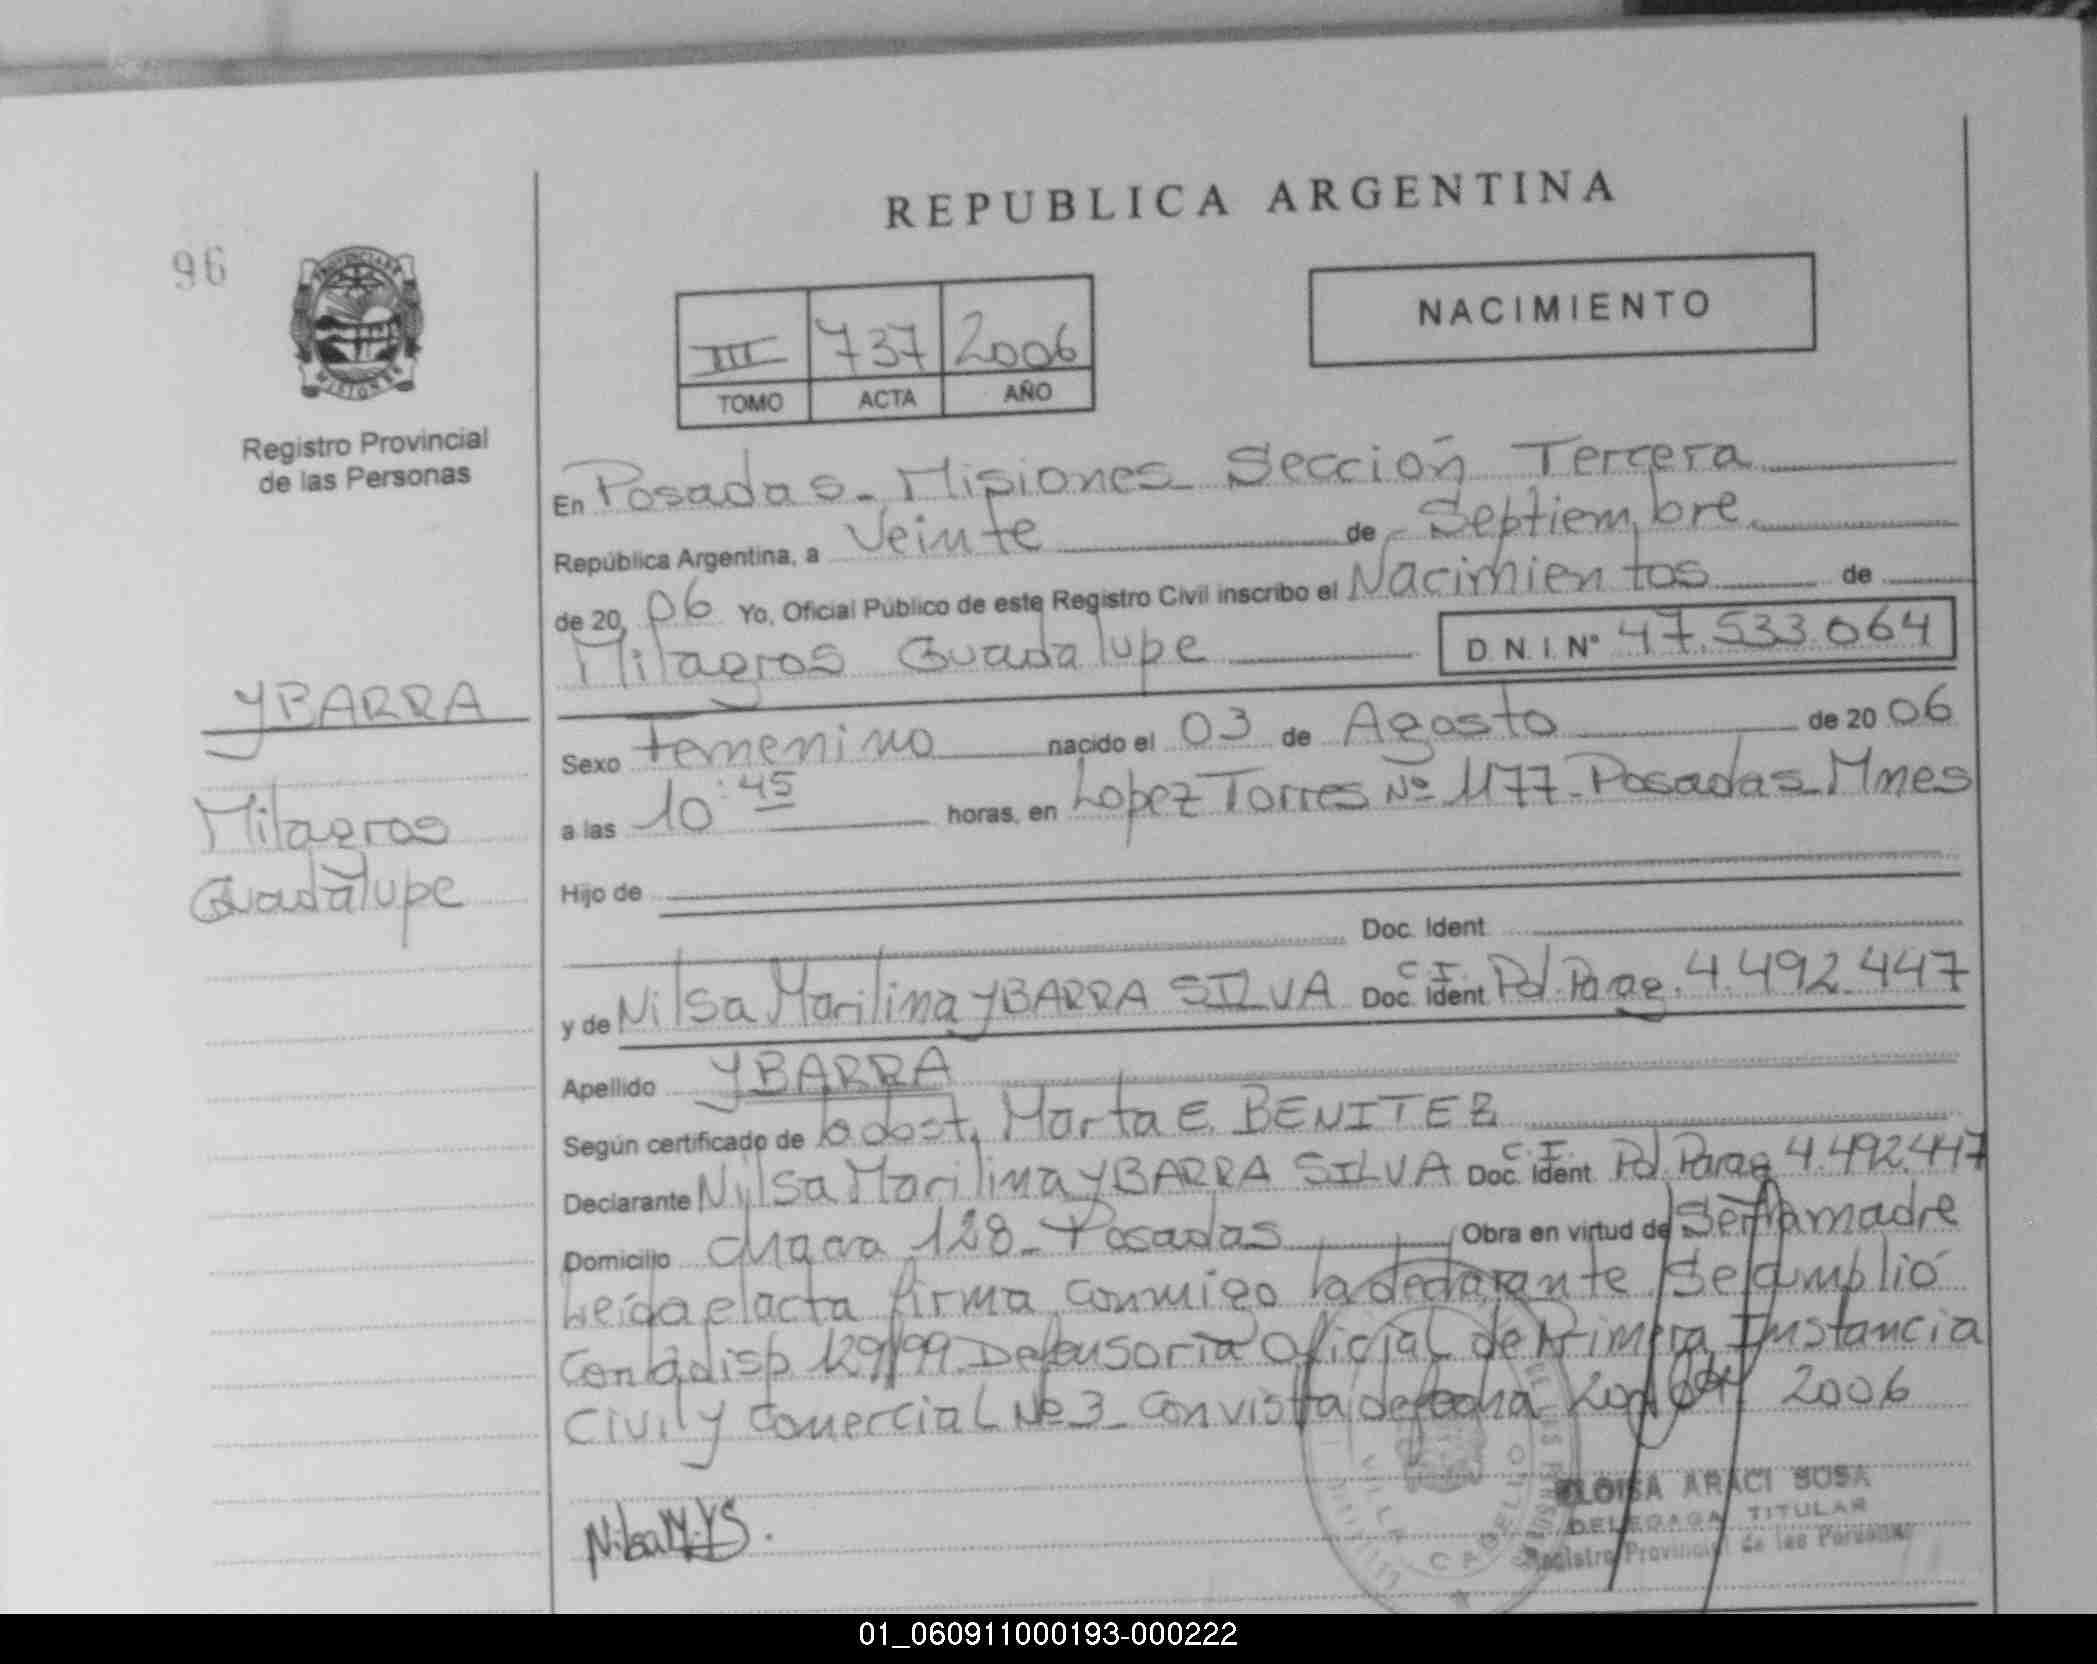 REPUBLICA ARGENTINA
96
NACIMIENTO
III 737 2006
TOMO ACTA AÑO
PROVINCIA DE
MISIONES
Registro Provincial
de las Personas
En Posadas - Misiones - Sección Tercera
República Argentina, a Veinte de Septiembre
de 20 06 Yo, Oficial Público de este Registro Civil inscribo el Nacimientos de
Milagros Guadalupe D.N.I. Nº 47.533.064
YBARRA
Milagros
Guadalupe
Sexo Femenino nacido el 03 de Agosto de 20 06
a las 10:45 horas, en Lopez Torres Nº 1177 - Posadas - Mnes
Hijo de
Doc. Ident
y de Nilsa Marilina YBARRA SILVA C.I. Doc. Ident Pol. Parag. 4.492.447
Apellido YBARRA
Según certificado de obst. Marta E. BENITEZ
Declarante Nilsa Marilina YBARRA SILVA C.I. Doc. Ident Pol. Parag 4.492.447
Domicilio chacra 128 - Posadas Obra en virtud de Ser la madre
Leída el acta firma conmigo la declarante Se cumplió
con la disp 129/99 Defensoría Oficial de Primera Instancia
Civil y Comercial Nº 3 - Con vista de fecha 2006
Nilsa M.YS.
ELOISA ARACI SUSA
DELEGADA TITULAR
Registro Provincial de las Personas
01_060911000193-000222